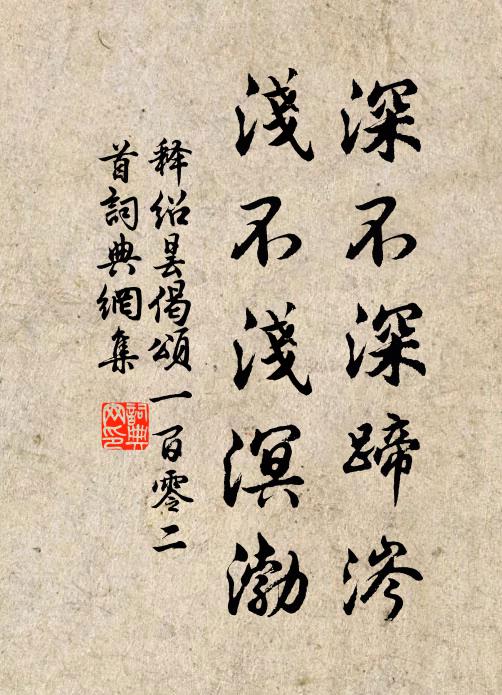 深不深蹄涔
淺不淺溟渤
释绍昙偈頌一百零二
首詞典網集
詞典網印